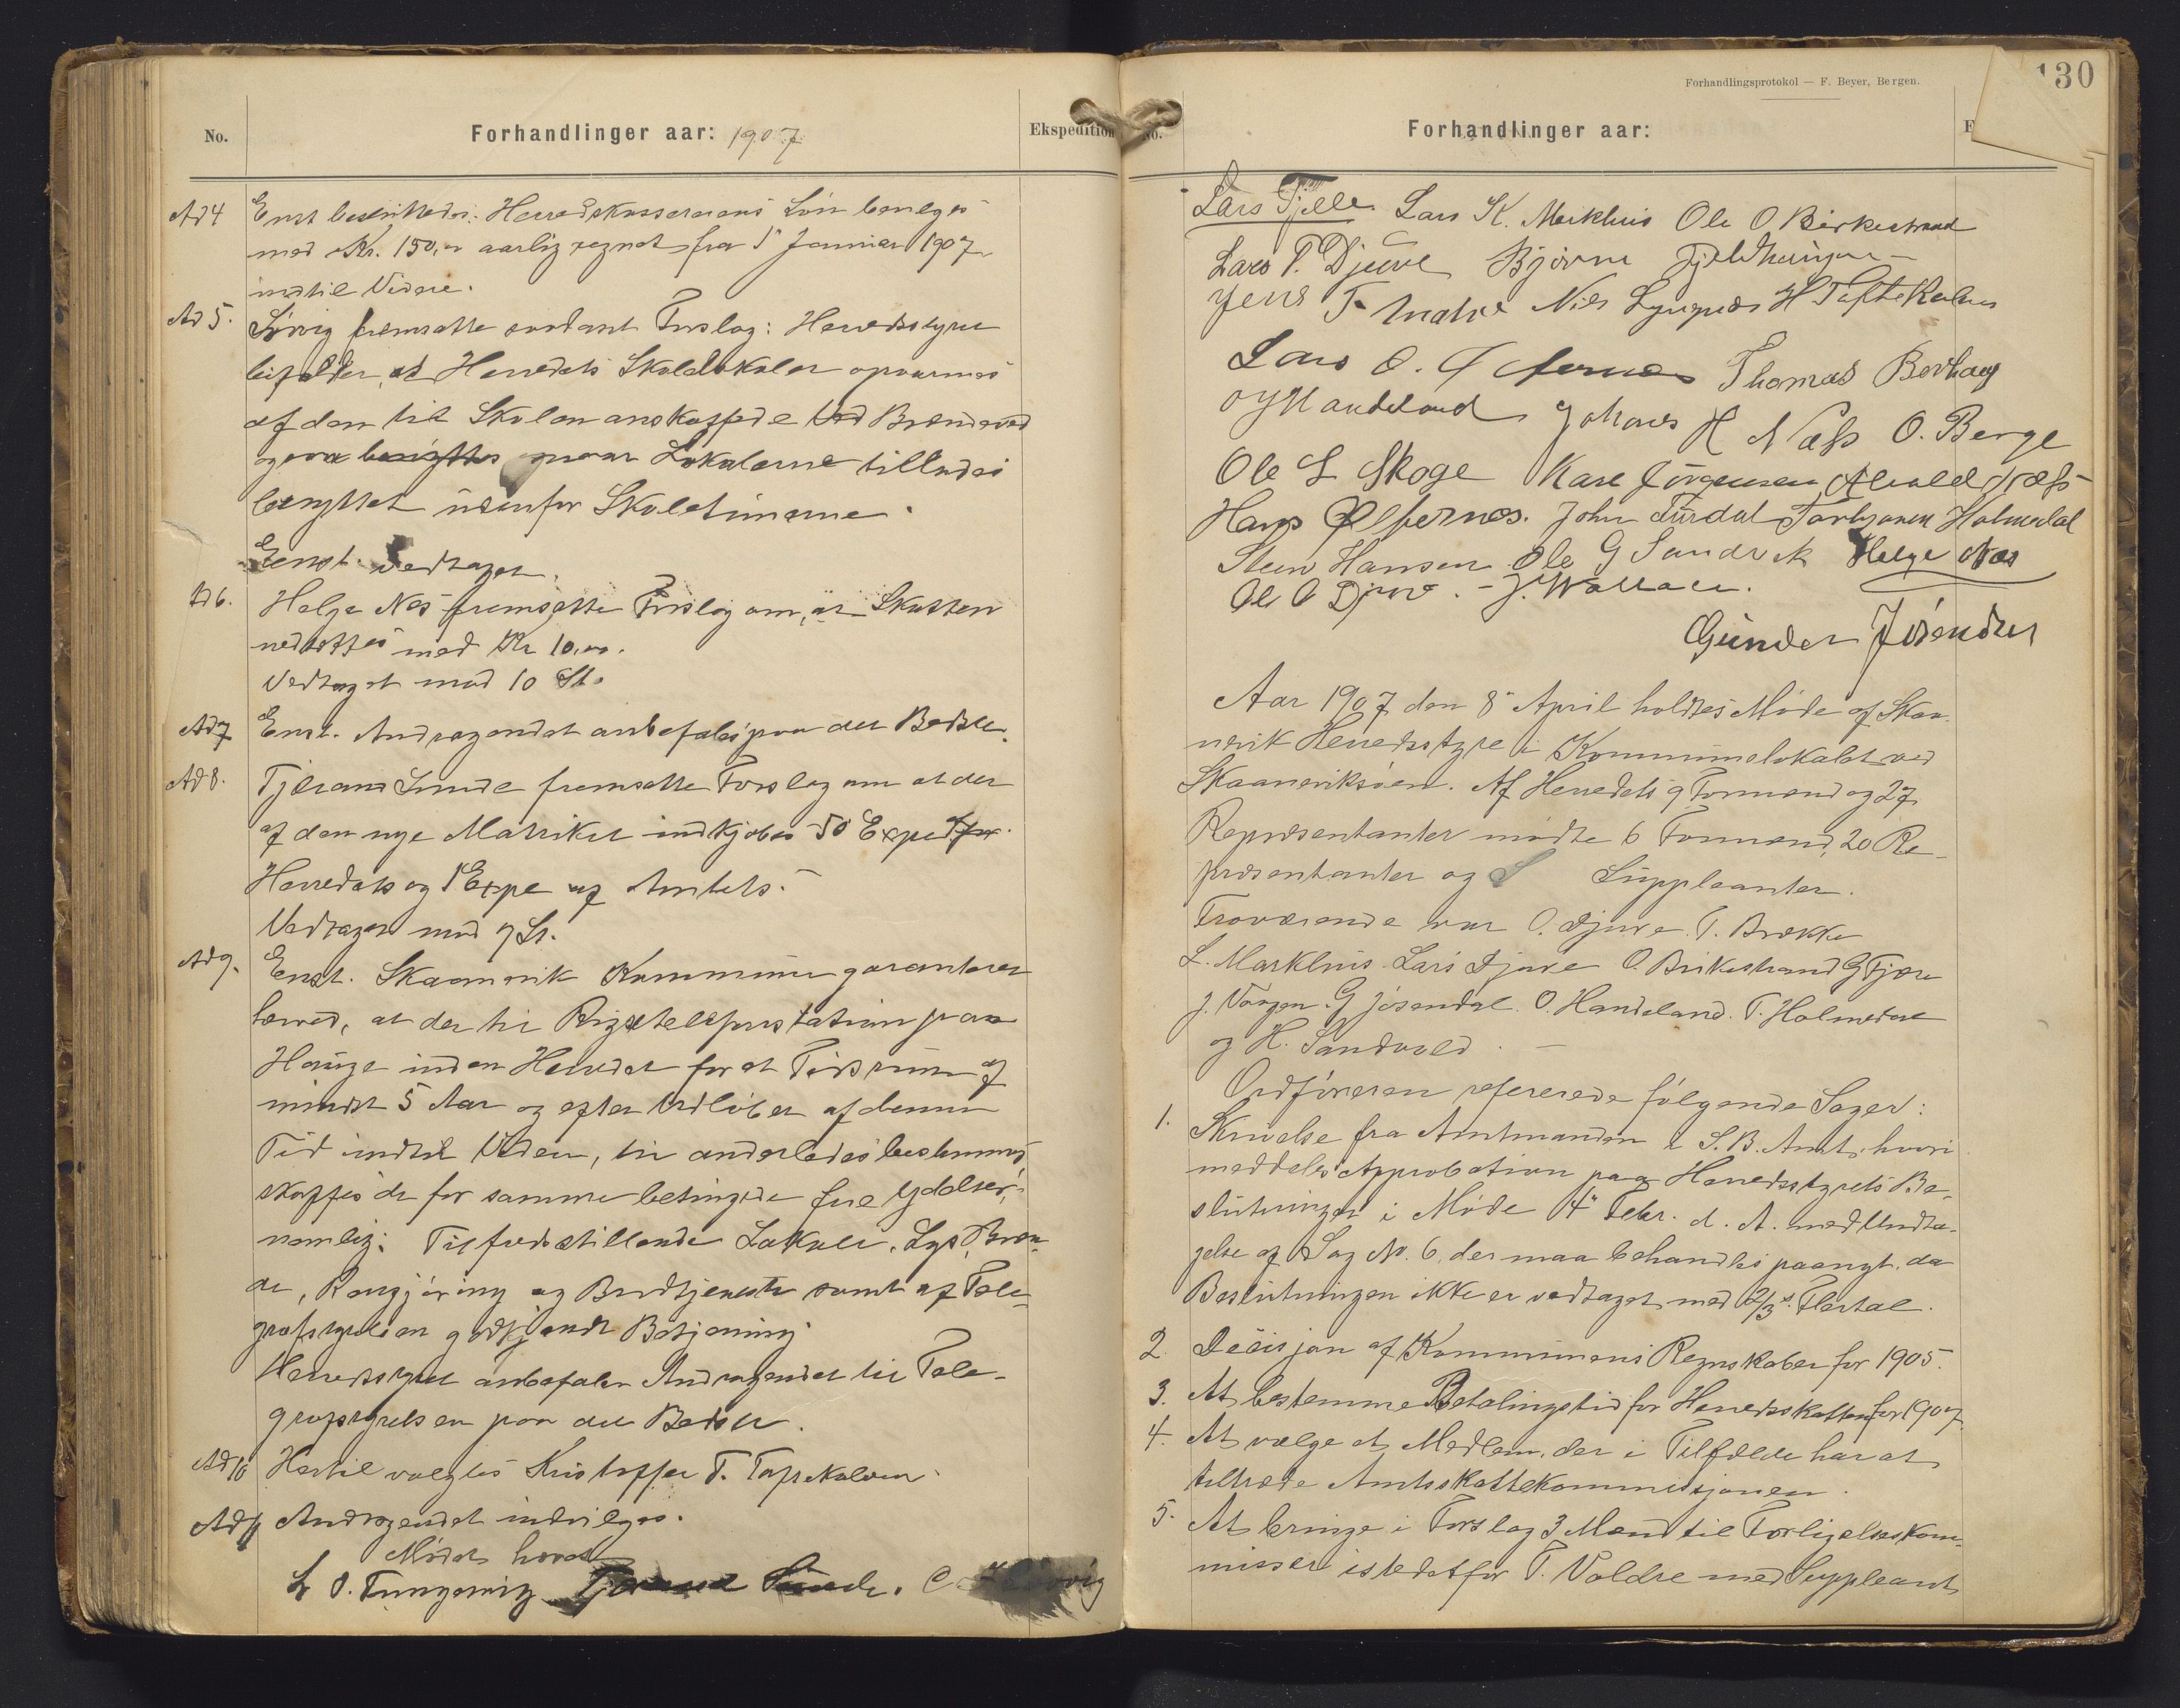 No. Forhandlinger aar: 1907 Ekspedition
Ad 4 Enst besluttedes: Herredskassererens Løn bevilges
med Kr. 150,00 aarlig regnet fra 1 Januar 1907
indtil Videre.
Ad 5. fremsatte saadant Forslag: Herredsstyret
bifalder, at Herredets Skolelokaler opvarmes
af den til Skolen anskaffede Ved Brændeved
ogsaa naar Lokalerne tillades
benyttet udenfor Skoletimerne.
Enst. vedtaget.
Ad 6. Helge Nes fremsatte Forslag om, at Skatten
nedsættes med Kr 10,00.
Vedtaget mod 10 St.
Ad 7 Enst. Andragendet anbefales paa det Bedste.
Ad 8. Tjerand Sunde fremsatte Forslag om at der
af den nye Matrikel indkjøbes 50 Expe for
Herredets og 1 Expe af Amtets.
Vedtaget mod 9 St.
Ad 9. Enst. Skaanevik Kommune garanterer
herved, at der til Rigstelefonstation paa
Hauge inden Herredet for et Tidsrum af
mindst 5 Aar og efter Udløbet af denne
Tid indtil Videre, til anderledes bestemmes
skaffes de for samme betingede frie Ydelser,
nemlig: Tilfredsstillende Lokale, Lys, Bræn-
de, Rengjøring og Budtjeneste samt af Tele-
grafstyrelsen godkjendt Betjening
Herredsstyret anbefaler Andragendet til Tele-
grafstyrelsen paa det Bedste.
Ad 10 Hertil valgtes Kristoffer T. Toftekalven
Ad 11 Andragendet indvilges.
Mødet hævet
L O. Tungesvig Tjerand Sunde.
Forhandlingsprotokol — F. Beyer, Bergen.
130
No. Forhandlinger aar: E
Lars Fjelle Lars K. Markhus Ole O Birkestrand
Lars T. Djuve Bjørn Fjeldhaugen
Jens T. Matre Nils H Toftekalven
Lars O. Thomas Borhaug
O J Handeland Johanes H Næss O. Berge
Ole L Skoge Karl Jørgensen Næss
Hans Ølfernes. John Furdal Torbjørn Holmedal
Sten Hansen Ole G Sandvik Helge Næs
Ole O Djuve. - J. Wallace.
Gunder Jøsendal
Aar 1907 den 8 April holdtes Møde af Skaa-
nevik Herredsstyre i Kommunelokalet ved
Skaaneviksøen. Af Herredets 9 Formænd og 27
Repræsentanter mødte 6 Formænd, 20 Re-
præsentanter og Suppleanter.
Fraværende var O. Djuve. T. Brekke
L. Markhus Lars Djuve O. Birkestrand G Fjære
J. Vaagen. G Jøsendal. O. Handeland. T. Holmedal
og H. Sandvold.
Ordføreren refererede følgende Sager:
1. Skrivelse fra Amtmanden i S. B. Amt, hvori
meddeles Approbation paa Herredsstyrets Be-
slutninger i Møde 4 Febr. d. A. med Undta-
gelse af Sag No. 6, der maa behandles paanyt, da
Beslutningen ikke er vedtaget med 2/3 Flertal.
2. Decisjon af Kommunens Regnskaber for 1905.
3. At bestemme Betalingstid for Herredsskatten for 1907
4. At vælge et Medlem, der i Tilfælde har at
tiltræde Amtsskattekommissjonen.
5. At bringe i Forslag 3 Mænd til Forligelseskom-
missær istedetfor T. Valdre med Suppleant